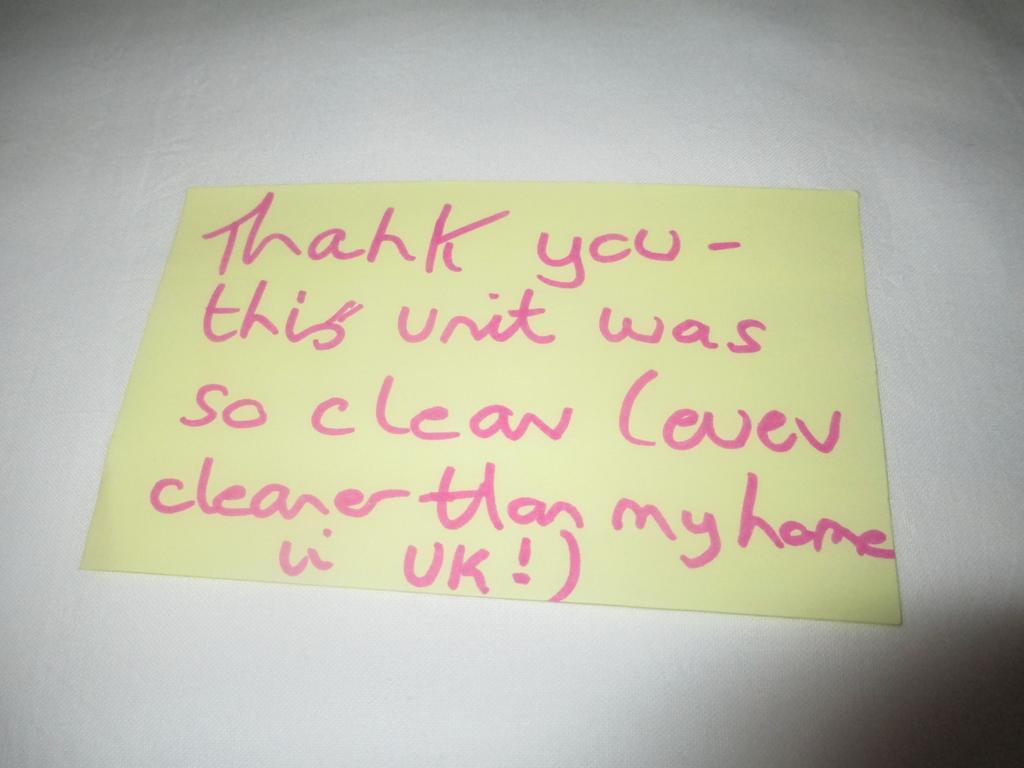 Thank you -
this unit was
so clean (even
cleaner than my home
in UK!)